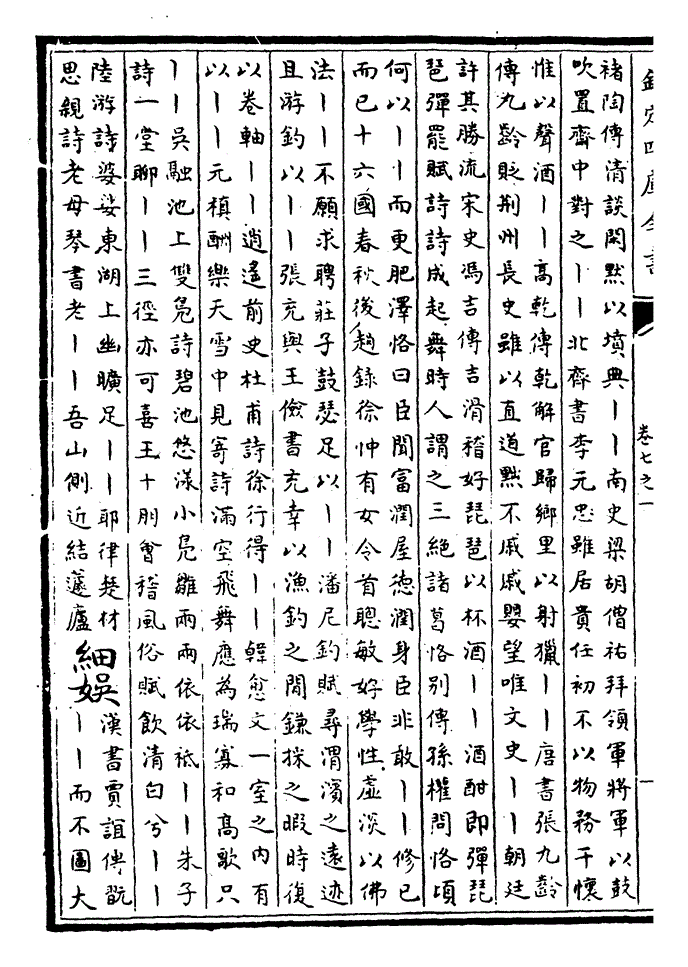 欽定四庫全書
卷七之一
一
褚陶傳清談閑默以墳典丨丨南史梁胡僧祐拜領軍將軍以鼓
吹置齋中對之丨丨北齊書李元忠雖居貴任初不以物務干懷
惟以聲酒丨丨高乾傳乾解官歸鄉里以射獵丨丨唐書張九齡
傳九齡貶荆州長史雖以直道黙不戚戚嬰望唯文史丨丨朝廷
許其勝流宋史馮吉傳吉滑稽好琵琶以杯酒丨丨酒酣即彈琵
琶彈罷賦詩詩成起舞時人謂之三絶諸葛恪别傳孫權問恪頃
何以丨丨而更肥澤恪曰臣聞富潤屋徳潤身臣非敢丨丨修已
而已十六國春秋後趙錄徐忡有女令首聰敏好學性虛淡以佛
法丨丨不願求聘莊子鼓瑟足以丨丨潘尼釣賦尋渭濱之遠迹
且游釣以丨丨張充與王儉書充幸以漁釣之閒鎌採之暇時復
以卷軸丨丨逍遙前史杜甫詩徐行得丨丨韓愈文一室之内有
以丨丨元稹酬樂天雪中見寄詩滿空飛舞應為瑞寡和髙歌只
丨丨吳融池上雙鳬詩碧池悠漾小鳬雛兩兩依依祗丨丨朱子
詩一堂聊丨丨三徑亦可喜王十朋會稽風俗賦飲清白兮丨丨
陸游詩婆娑東湖上幽曠足丨丨耶律楚材
思親詩老母琴書老丨丨吾山側近結蘧廬
細娯
漢書賈誼傳翫
丨丨而不圖大